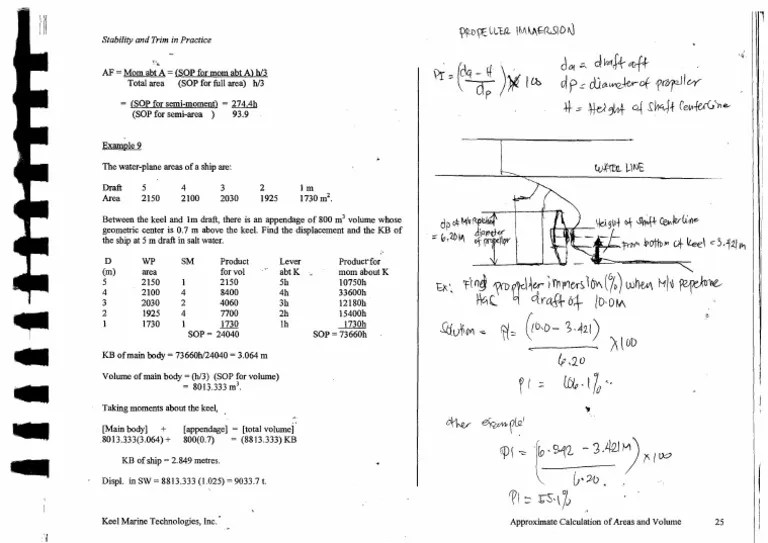 Stability and Trim in Practice
AF = Mom abt A = (SOP for mom abt A) h/3
Total area (SOP for full area) h/3
= (SOP for semi-moment) = 274.4h
(SOP for semi-area ) 93.9
Example 9
The water-plane areas of a ship are:
Draft 5 4 3 2 1 m
Area 2150 2100 2030 1925 1730 m².
Between the keel and 1m draft, there is an appendage of 800 m³ volume whose
geometric center is 0.7 m above the keel. Find the displacement and the KB of
the ship at 5 m draft in salt water.
D WP SM Product Lever Product for
(m) area for vol abt K mom about K
5 2150 1 2150 5h 10750h
4 2100 4 8400 4h 33600h
3 2030 2 4060 3h 12180h
2 1925 4 7700 2h 15400h
1 1730 1 1730 1h 1730h
SOP = 24040 SOP = 73660h
KB of main body = 73660h/24040 = 3.064 m
Volume of main body = (h/3) (SOP for volume)
= 8013.333 m³.
Taking moments about the keel,
[Main body] + [appendage] = [total volume]
8013.333(3.064) + 800(0.7) = (8813.333) KB
KB of ship = 2.849 metres.
Displ. in SW = 8813.333 (1.025) = 9033.7 t.
Keel Marine Technologies, Inc.
PROPELLER IMMERSION
PI = (da - H / dp) X 100
da = draft aft
dp = diameter of propeller
H = Height of Shaft Centerline
WATER LINE
= 6.20M
diameter
of propeller
Height of Shaft Center Line
From bottom of keel = 3.421m
Ex: Find propeller immersion (%) when M/V
draft of 10.0M
Solution = PI = (10.0 - 3.421) X 100
6.20
PI = 106.1%
other example
PI = (6.842 - 3.421M) X 100
6.20
PI = 55.1%
Approximate Calculation of Areas and Volume 25